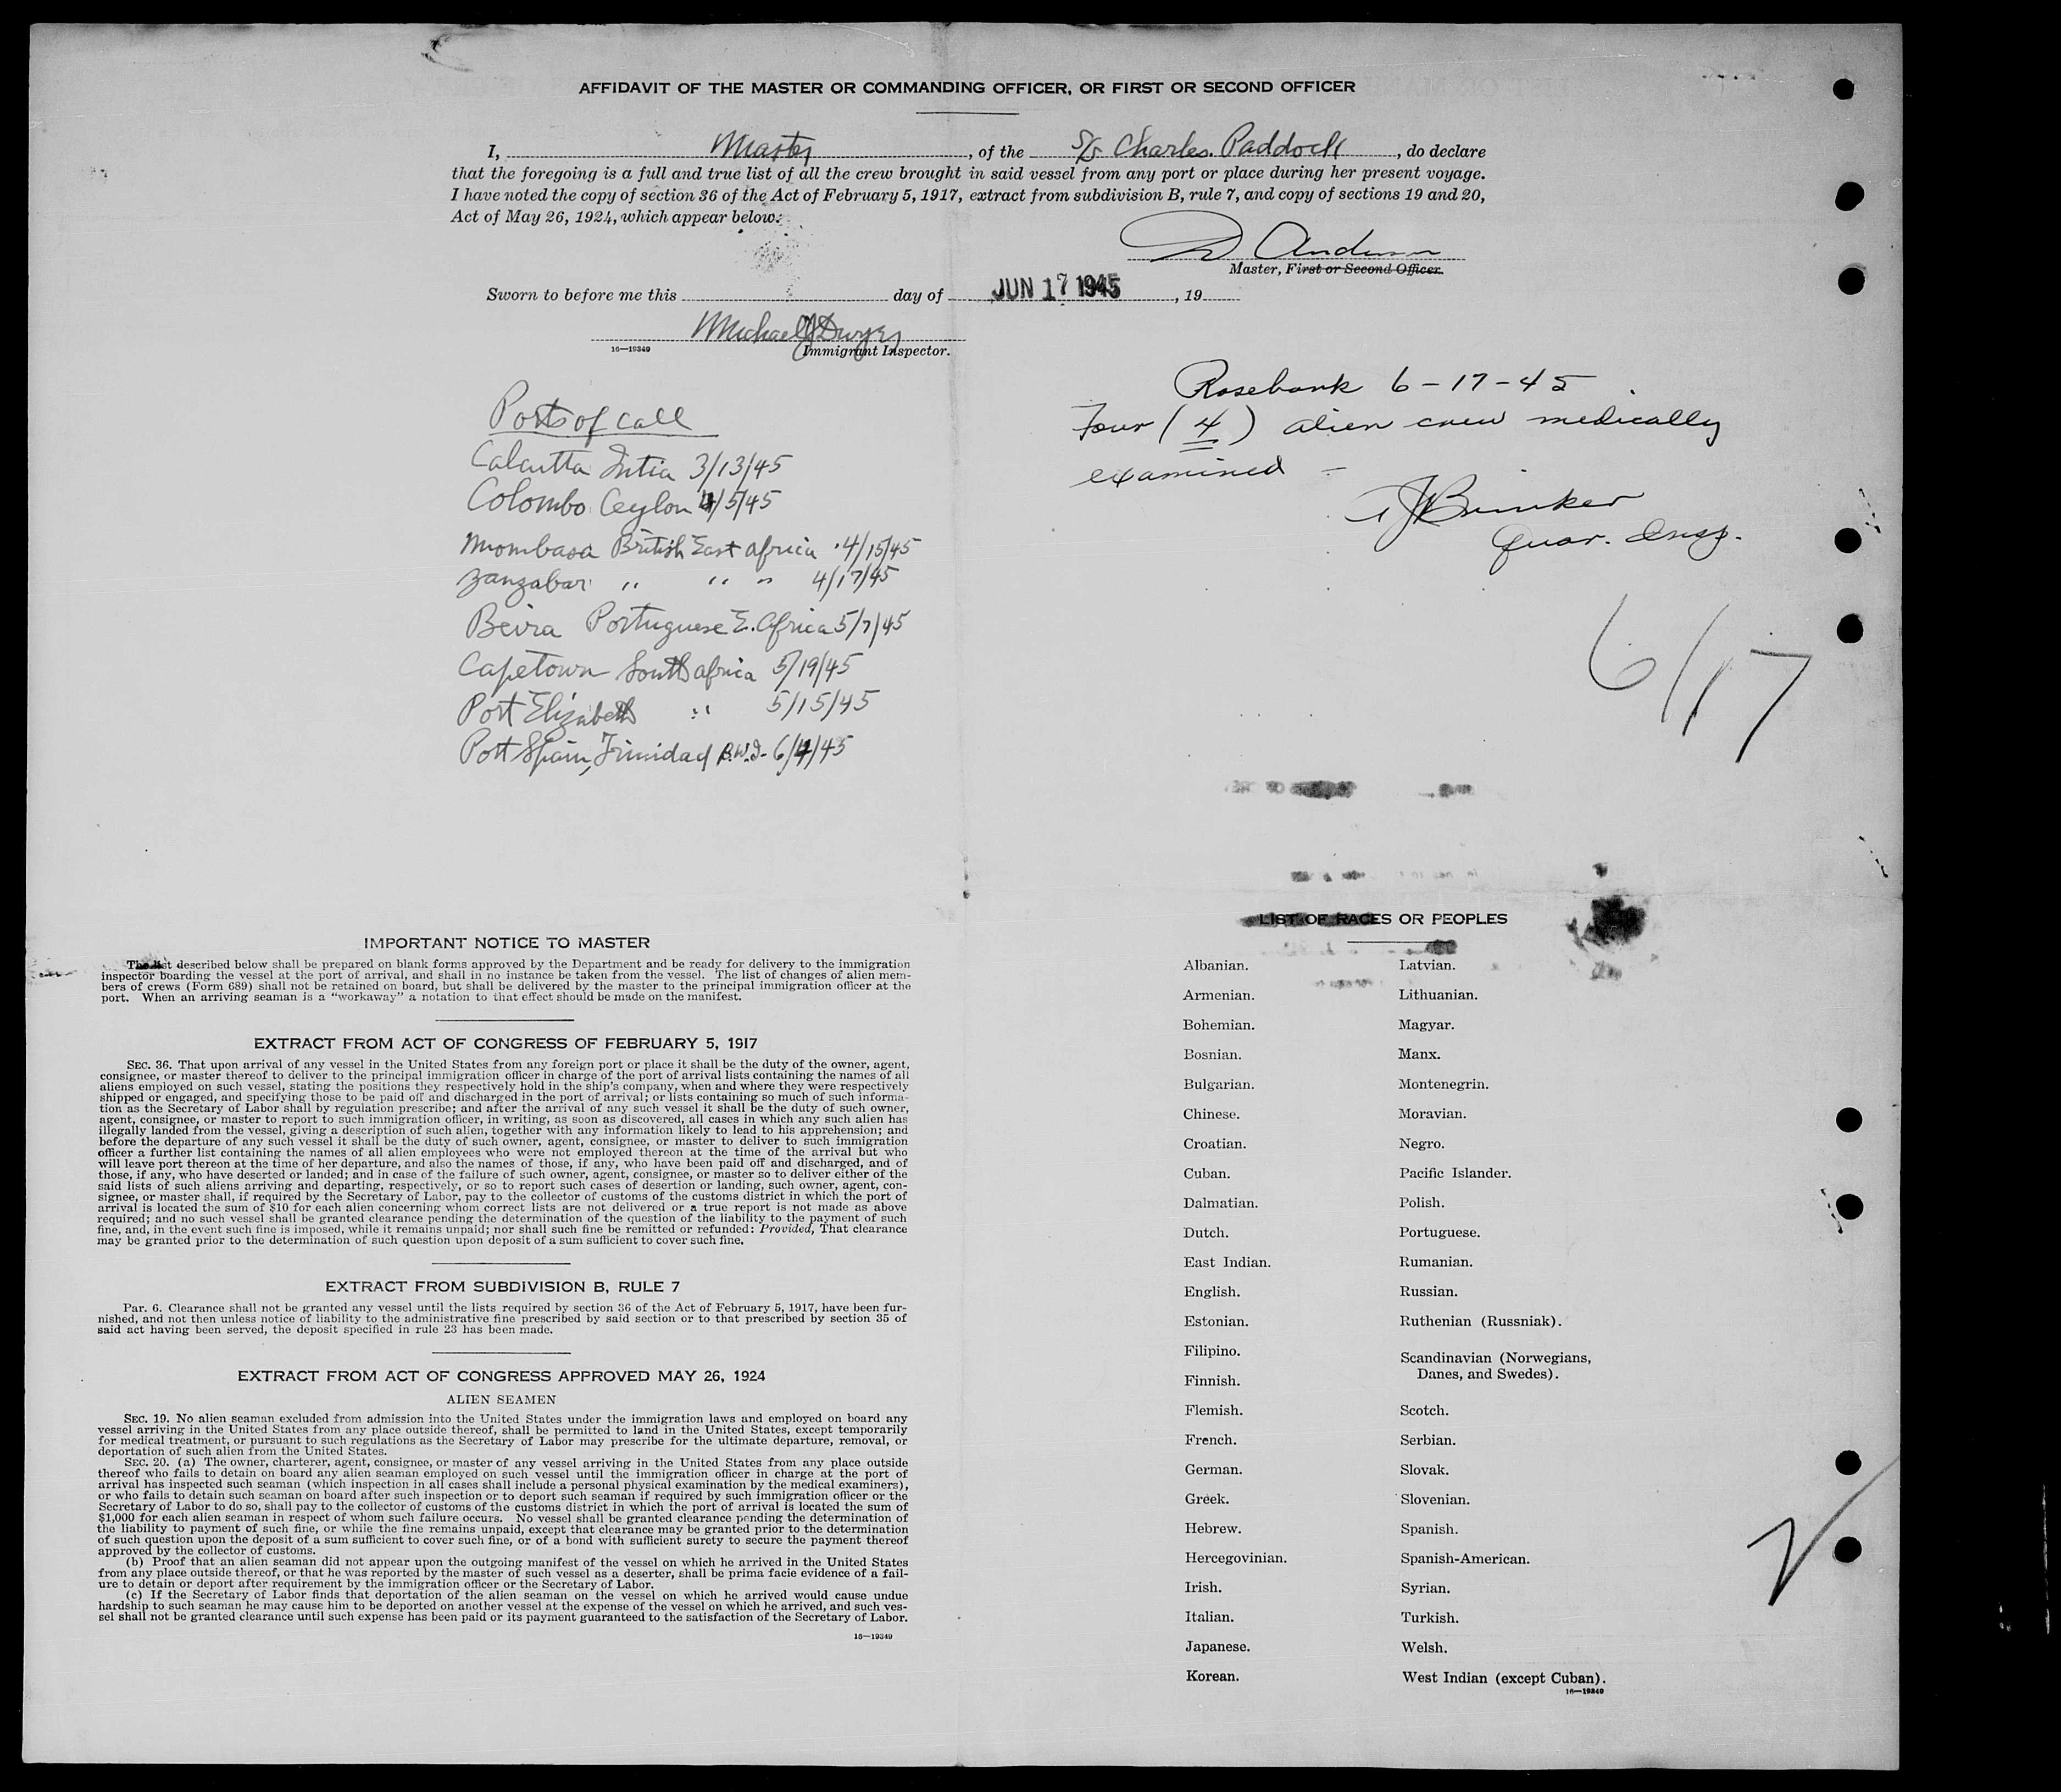 AFFIDAVIT OF THE MASTER OR COMMANDING OFFICER, OR FIRST OR SECOND OFFICER
I, Master, of the S/S Charles. Paddock, do declare
that the foregoing is a full and true list of all the crew brought in said vessel from any port or place during her present voyage.
I have noted the copy of section 36 of the Act of February 5, 1917, extract from subdivision B, rule 7, and copy of sections 19 and 20,
Act of May 26, 1924, which appear below:
Master, First or Second Officer.
Sworn to before me this day of JUN 17 1945, 19
Michael J Dwyer
16—19349 Immigrant Inspector.
Ports of call
Calcutta Intia 3/13/45
Colombo Ceylon 4/5/45
Mombasa British East africa 4/15/45
Zanzabar " " " 4/17/45
Beira Portuguese E. Africa 5/7/45
Capetown South africa 5/19/45
Port Elizabeth " 5/15/45
Port Spain, Trinidad B.W.I. 6/4/45
Rosebank 6-17-45
Four (4) alien crew medically
examined -
Quar. Insp.
6/17
IMPORTANT NOTICE TO MASTER
The list described below shall be prepared on blank forms approved by the Department and be ready for delivery to the immigration
inspector boarding the vessel at the port of arrival, and shall in no instance be taken from the vessel. The list of changes of alien mem-
bers of crews (Form 689) shall not be retained on board, but shall be delivered by the master to the principal immigration officer at the
port. When an arriving seaman is a "workaway" a notation to that effect should be made on the manifest.
EXTRACT FROM ACT OF CONGRESS OF FEBRUARY 5, 1917
SEC. 36. That upon arrival of any vessel in the United States from any foreign port or place it shall be the duty of the owner, agent,
consignee, or master thereof to deliver to the principal immigration officer in charge of the port of arrival lists containing the names of all
aliens employed on such vessel, stating the positions they respectively hold in the ship's company, when and where they were respectively
shipped or engaged, and specifying those to be paid off and discharged in the port of arrival; or lists containing so much of such informa-
tion as the Secretary of Labor shall by regulation prescribe; and after the arrival of any such vessel it shall be the duty of such owner,
agent, consignee, or master to report to such immigration officer, in writing, as soon as discovered, all cases in which any such alien has
illegally landed from the vessel, giving a description of such alien, together with any information likely to lead to his apprehension; and
before the departure of any such vessel it shall be the duty of such owner, agent, consignee, or master to deliver to such immigration
officer a further list containing the names of all alien employees who were not employed thereon at the time of the arrival but who
will leave port thereon at the time of her departure, and also the names of those, if any, who have been paid off and discharged, and of
those, if any, who have deserted or landed; and in case of the failure of such owner, agent, consignee, or master so to deliver either of the
said lists of such aliens arriving and departing, respectively, or so to report such cases of desertion or landing, such owner, agent, con-
signee, or master shall, if required by the Secretary of Labor, pay to the collector of customs of the customs district in which the port of
arrival is located the sum of $10 for each alien concerning whom correct lists are not delivered or a true report is not made as above
required; and no such vessel shall be granted clearance pending the determination of the question of the liability to the payment of such
fine, and, in the event such fine is imposed, while it remains unpaid; nor shall such fine be remitted or refunded: Provided, That clearance
may be granted prior to the determination of such question upon deposit of a sum sufficient to cover such fine.
EXTRACT FROM SUBDIVISION B, RULE 7
Par. 6. Clearance shall not be granted any vessel until the lists required by section 36 of the Act of February 5, 1917, have been fur-
nished, and not then unless notice of liability to the administrative fine prescribed by said section or to that prescribed by section 35 of
said act having been served, the deposit specified in rule 23 has been made.
EXTRACT FROM ACT OF CONGRESS APPROVED MAY 26, 1924
ALIEN SEAMEN
SEC. 19. No alien seaman excluded from admission into the United States under the immigration laws and employed on board any
vessel arriving in the United States from any place outside thereof, shall be permitted to land in the United States, except temporarily
for medical treatment, or pursuant to such regulations as the Secretary of Labor may prescribe for the ultimate departure, removal, or
deportation of such alien from the United States.
SEC. 20. (a) The owner, charterer, agent, consignee, or master of any vessel arriving in the United States from any place outside
thereof who fails to detain on board any alien seaman employed on such vessel until the immigration officer in charge at the port of
arrival has inspected such seaman (which inspection in all cases shall include a personal physical examination by the medical examiners),
or who fails to detain such seaman on board after such inspection or to deport such seaman if required by such immigration officer or the
Secretary of Labor to do so, shall pay to the collector of customs of the customs district in which the port of arrival is located the sum of
$1,000 for each alien seaman in respect of whom such failure occurs. No vessel shall be granted clearance pending the determination of
the liability to payment of such fine, or while the fine remains unpaid, except that clearance may be granted prior to the determination
of such question upon the deposit of a sum sufficient to cover such fine, or of a bond with sufficient surety to secure the payment thereof
approved by the collector of customs.
(b) Proof that an alien seaman did not appear upon the outgoing manifest of the vessel on which he arrived in the United States
from any place outside thereof, or that he was reported by the master of such vessel as a deserter, shall be prima facie evidence of a fail-
ure to detain or deport after requirement by the immigration officer or the Secretary of Labor.
(c) If the Secretary of Labor finds that deportation of the alien seaman on the vessel on which he arrived would cause undue
hardship to such seaman he may cause him to be deported on another vessel at the expense of the vessel on which he arrived, and such ves-
sel shall not be granted clearance until such expense has been paid or its payment guaranteed to the satisfaction of the Secretary of Labor.
16—19349
LIST OF RACES OR PEOPLES
Albanian.
Armenian.
Bohemian.
Bosnian.
Bulgarian.
Chinese.
Croatian.
Cuban.
Dalmatian.
Dutch.
East Indian.
English.
Estonian.
Filipino.
Finnish.
Flemish.
French.
German.
Greek.
Hebrew.
Hercegovinian.
Irish.
Italian.
Japanese.
Korean.
Latvian.
Lithuanian.
Magyar.
Manx.
Montenegrin.
Moravian.
Negro.
Pacific Islander.
Polish.
Portuguese.
Rumanian.
Russian.
Ruthenian (Russniak).
Scandinavian (Norwegians,
Danes, and Swedes).
Scotch.
Serbian.
Slovak.
Slovenian.
Spanish.
Spanish-American.
Syrian.
Turkish.
Welsh.
West Indian (except Cuban).
16—19349